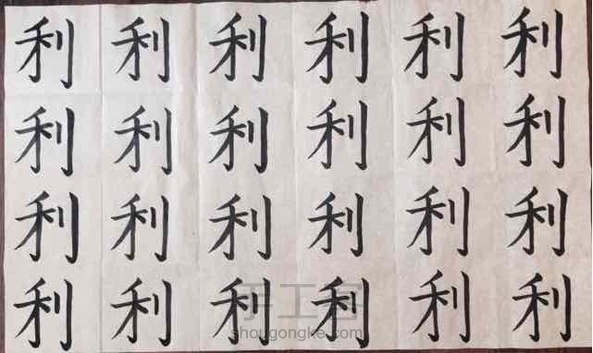 利利利利利利
利利利利利利
利利利利利利
利利利利利利
手工客
shougongke.com